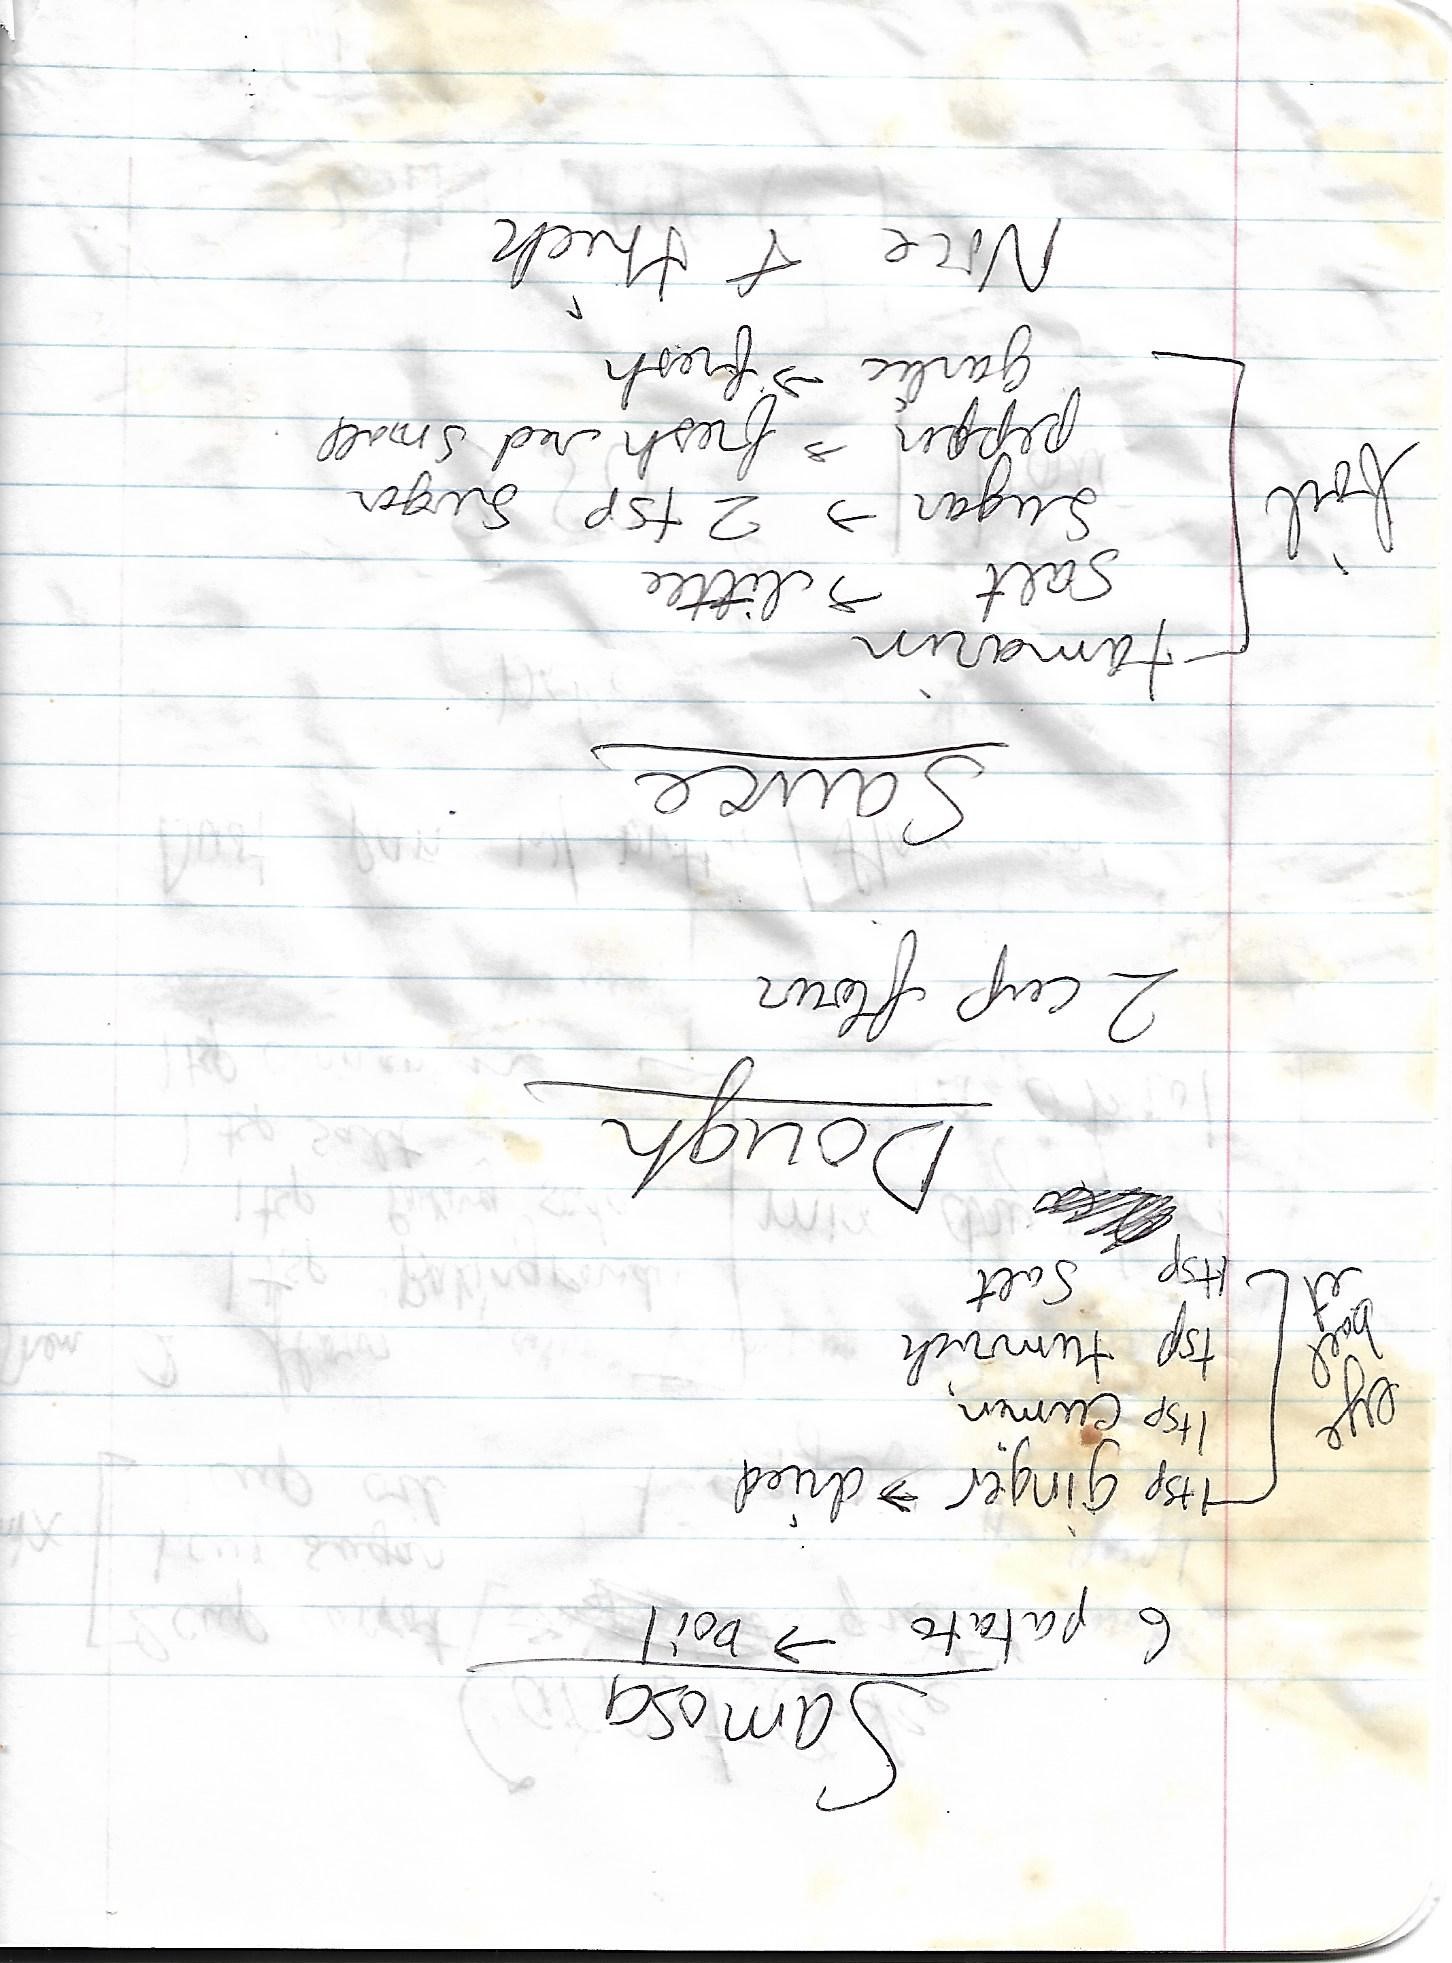 Samosa
6 patato → boil
1tsp ginger → dried
1tsp cumin
tsp tumrick
1tsp salt
eye
ball
it
Dough
2 cup flour
Sauce
tamarin
salt → little
sugar → 2 tsp sugar
pepper → fresh red small
garlic → fresh
boil
Nice & thick